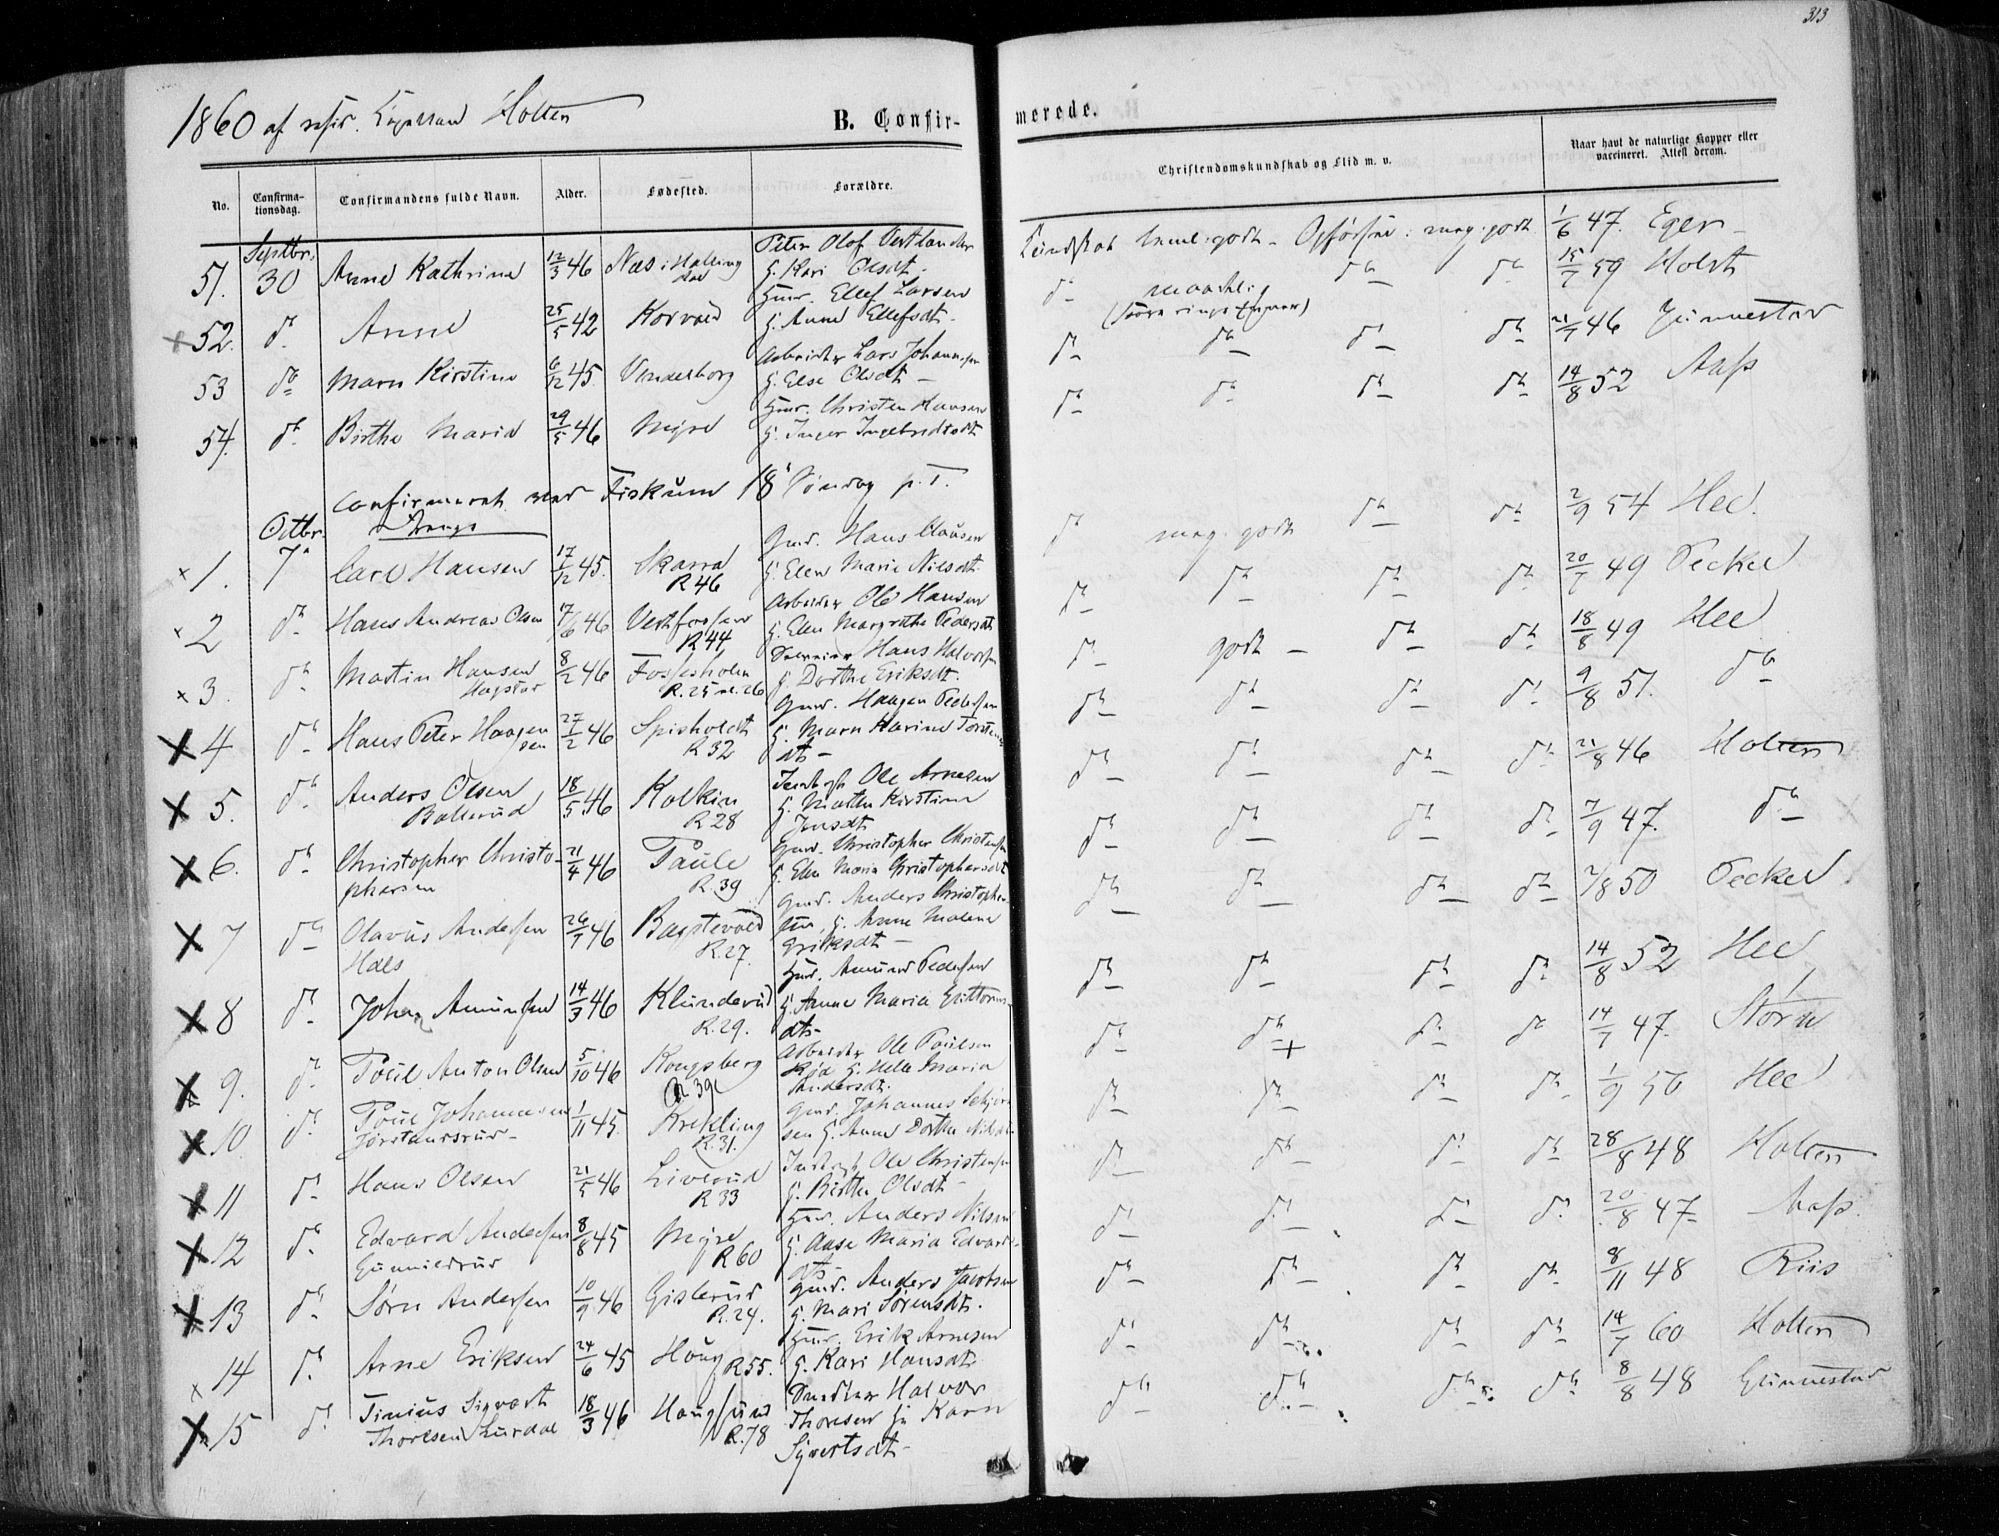 313
1860 af resid. Capellan Holten
B. Confir-
merede.
No.
Confirma-
tionsdag.
Confirmandens fulde Navn.
Alder.
Fødested.
Forældre.
Christendomskundskab og Flid m. v.
Naar havt de naturlige Kopper eller
vaccineret. Attest derom.
Septbr.
51. 30 Anne Kathrine 12/3 46 Næs i Halling
dal
Peter Olof Vestlander
H. Kari Olsdt.
Kundskab teml. godt - Opførsel: meg. godt 1/6 47. Eger
52. do Anne 25/5 42 Korvald
Huusm. Ellef Larsen
H. Anne Ellefsdt.
do maadel. do do 15/7 59 Holst
53 do Maren Kirstine 6/12 45. Vendelborg
Arbeider Lars Johannesen
H. Else Olsdt
do do do do 21/7 46 Gunnestad
54. do Birthe Maria 29/5 46 Myre
Huusm. Christen Hansen
H. Inger Ingebretsdt
do do do do 14/8 52 Aass
Confirmeret ved Fiskum 18' Søndag p. T.
Octbr. Drenge
1. 7 Carl Hansen 17/12 45. Skarra
R 46
Gmd. Hans Clausen
H. Elen Marie Nilsdt.
do meg. godt do do 2/9 54 Hee.
2 do Hans Andreas Olsen 17/6 46 Vestfossen
R 44
Arbeider Ole Hansen
H. Elen Margrethe Pedersdt
do do do do 20/7 49 Peckel
3. do Martin Hansen
Hagstad
8/2 46 Fossesholm
R. 25 el. 26
Hans Halvorsen
H. Dorthe Eriksdt.
do godt do do 18/8 49 Hee
4 do Hans Peter Haagen
sen
27/2 46 Spisholdt
R 32
Gmd. Haagen Pedersen
H. Maren Karine Torstens
dt
do do do do 9/8 51. do
5. do Anders Olsen
Ballerud
18/5 46 Kolkin
R 28
Ole Arnesen
H. Marthe Kirstine
Jensdt
do do do do 21/8 46 Holten
6. do Christopher Christo-
phersen
21/4 46 Paule
R. 39
Gmd. Christopher Christensen
H. Elen Maria Christophersdt
do do do do 7/9 47. do
7 do Olavus Andersen
Hals
26/7 46 Bagstevold
R. 27.
Gmd. Anders Christopher-
sen, H. Anne Malene
Eriksdt
do do do do 7/8 50 Peckel
8 do Johan Amundsen 14/3 46 Klunderud
R. 29.
Huusm. Amund Pedersen
H. Anne Maria Guttorms
dt
do do do do 14/8 52 Hee
9. do Poul Anton Olsen 5/10 46 Kongsberg
R 39
Arbeider Ole Paulsen
H. Helle Maria
Andersdt.
do do + do do 14/7 47. Størn
10. do Poul Johannesen
Jørstansrud
1/11 45. Krekling
R. 31.
Gmd. Johannes
sen H. Anne Dorthe Nilsdt
do do do do 1/9 50 Hee
11 do Hans Olsen 21/5 46 Liverud
R 33
Ole Christensen
H. Birthe Olsdt
do do do do 28/8 48 Holten
12 do Edvard Andersen
Gunnildrud
8/8 45 Myre
R 60
Huusm. Anders Nilsen
H. Aase Maria Edvards
dt
do do do do 20/8 47 Aass.
13 do Søren Andersen 10/9 46 Gislerud
R. 24.
Gmd. Anders Jacobsen
H. Mari Sørensdt.
do do do do 8/11 48 Riis
14 do Arne Eriksen 24/6 45 Houg R 55.
Huusm. Erik Arnesen
H. Kari Hansdt
do do do do 14/7 60 Holten
15 do Tinius Sigvart
Thoresen Lurdal
18/3 46 Hougsund
R. 78
Halvor
Thoresen H. Karen
Syvertsdt
do do do do 8/8 48 Gunnestad